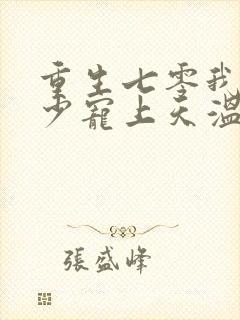 重生七零我
少寵上天溫
張盛峰